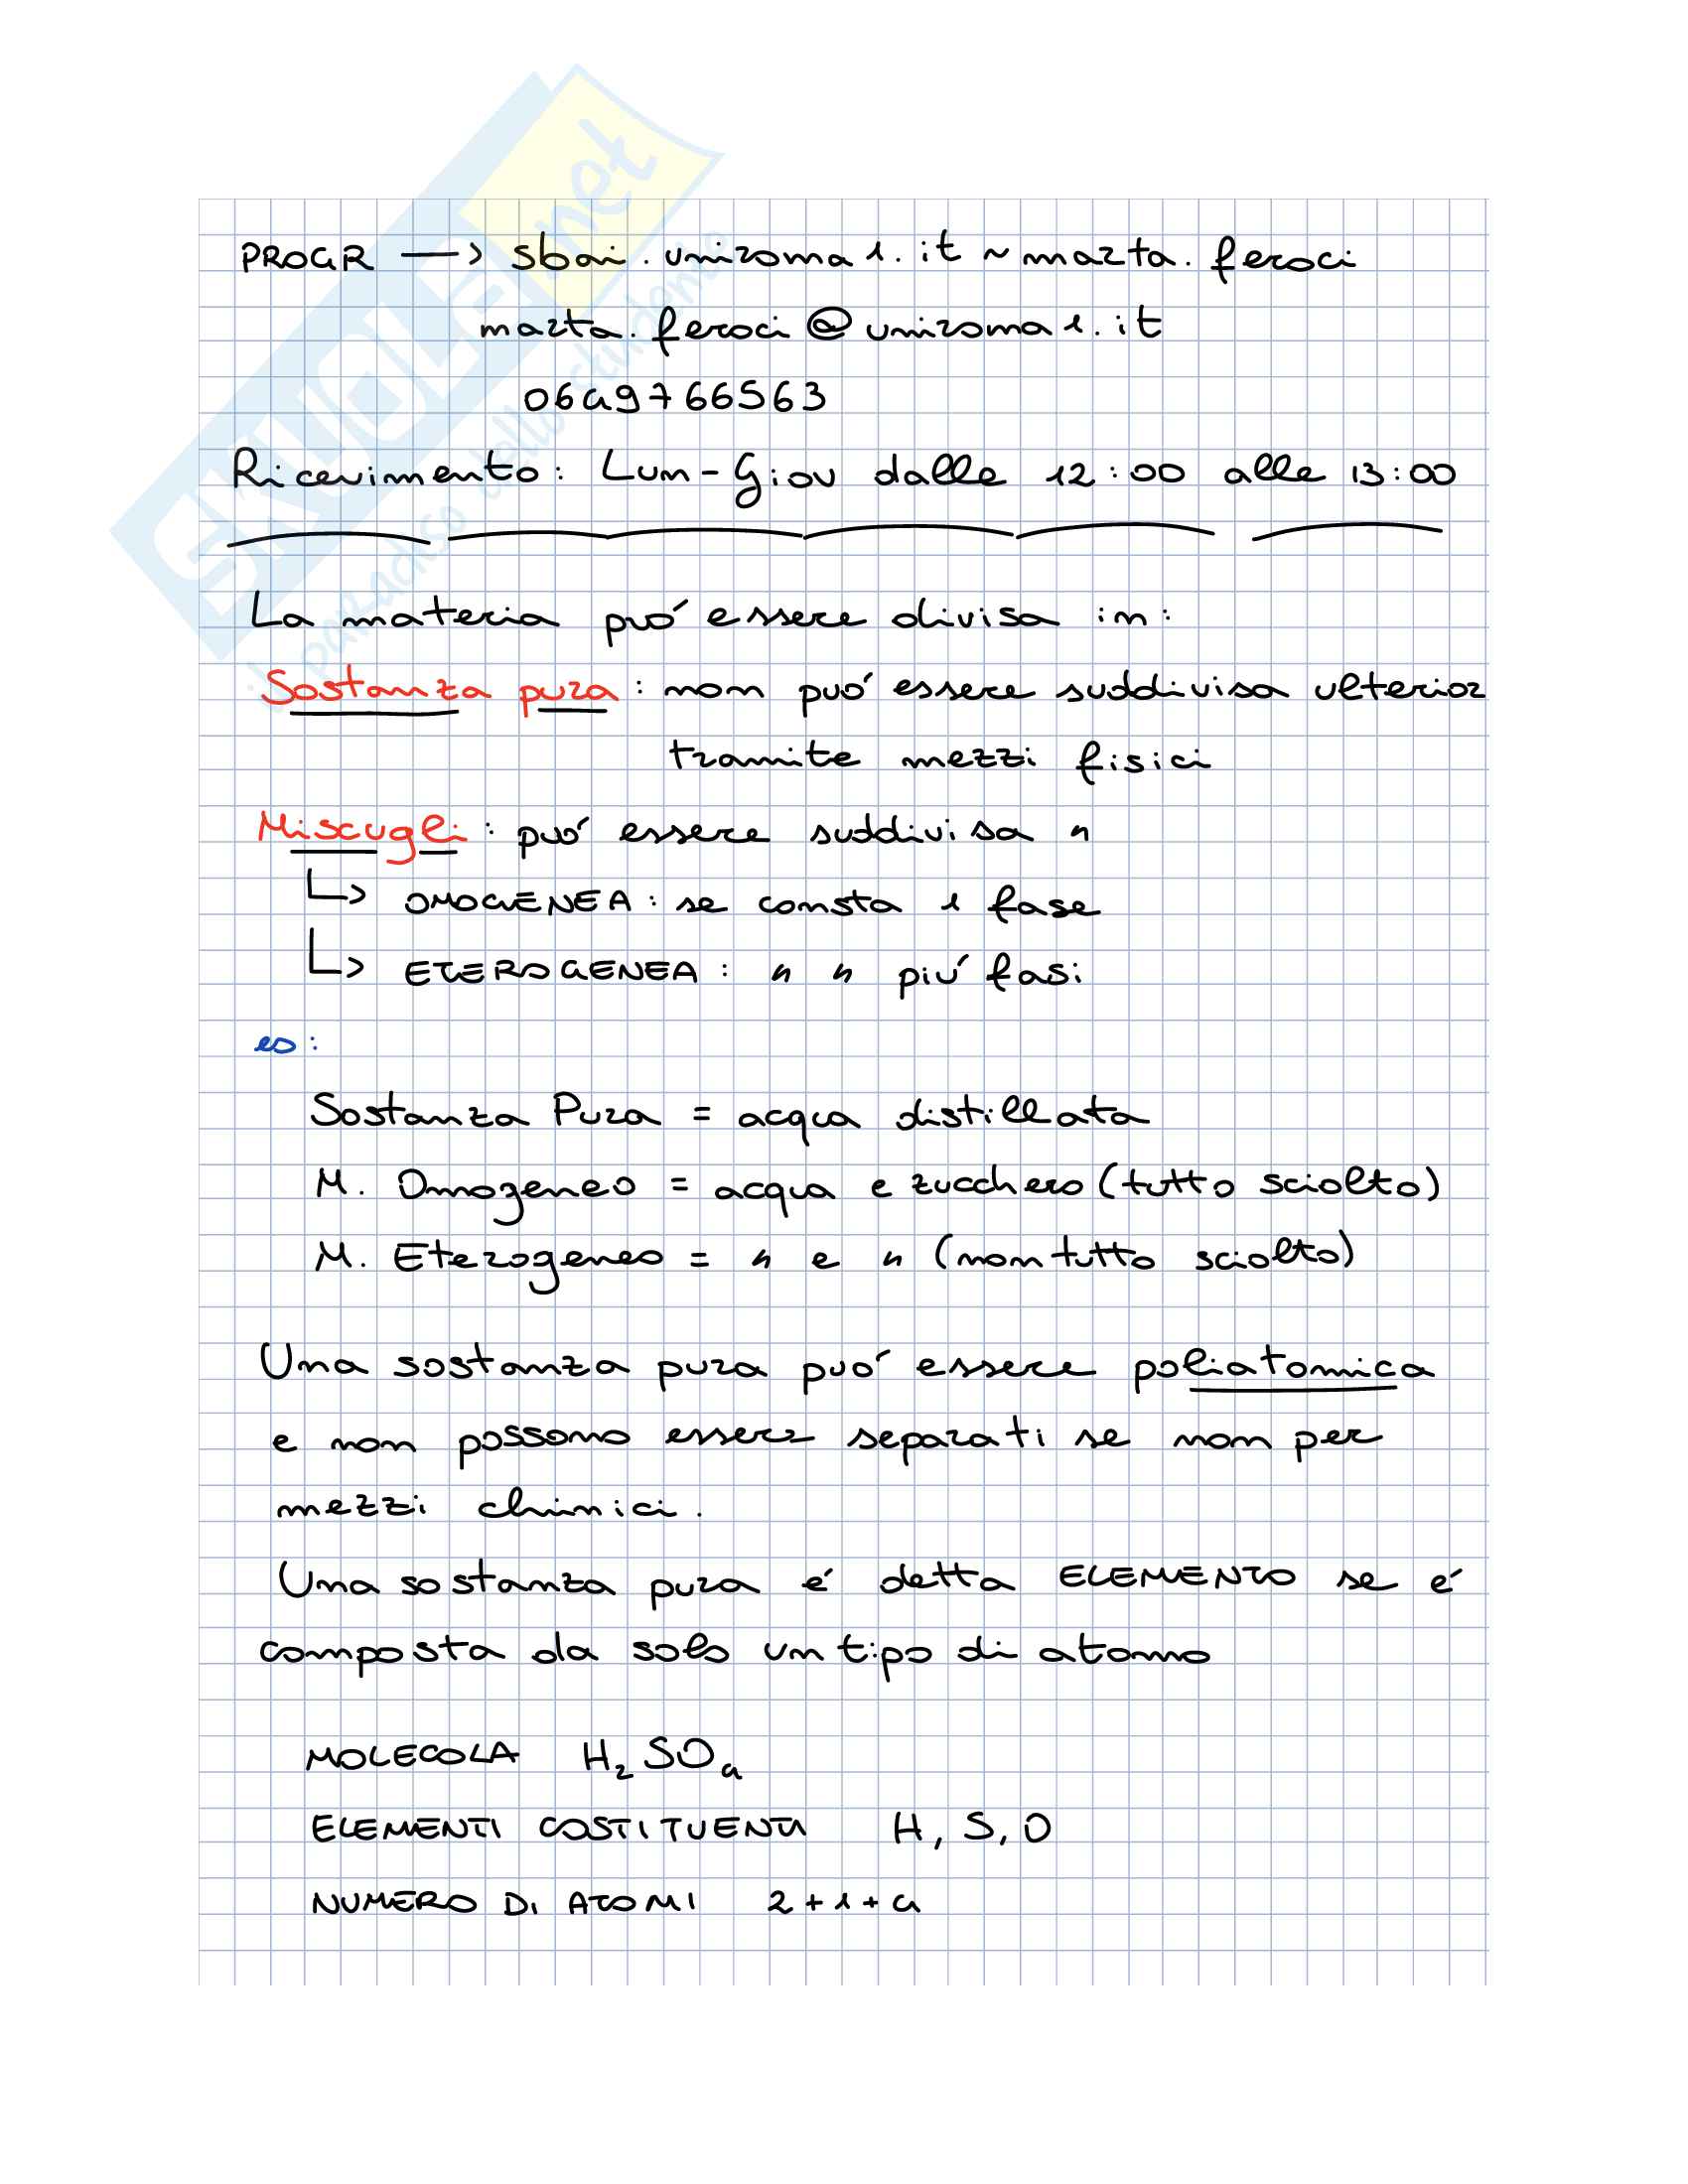 SKUOLA.net
il paradiso dello studente
PROGR → sbai.uniroma1.it ~ marta.feroci
marta.feroci@uniroma1.it
0649766563
Ricevimento: Lun-Giov dalle 12:00 alle 13:00
La materia puó essere divisa in:
Sostanza pura: non puó essere suddivisa ulterior
tramite mezzi fisici
Miscugli: puó essere suddivisa "
↳ OMOGENEA: se consta 1 fase
↳ ETEROGENEA: " " piú fasi
es:
Sostanza Pura = acqua distillata
M. Omogeneo = acqua e zucchero (tutto sciolto)
M. Eterogeneo = " e " (non tutto sciolto)
Una sostanza pura puó essere poliatomica
e non possono essere separati se non per
mezzi chimici.
Una sostanza pura é detta ELEMENTO se é
composta da solo un tipo di atomo
MOLECOLA H₂SO₄
ELEMENTI COSTITUENTI H, S, O
NUMERO DI ATOMI 2+1+4